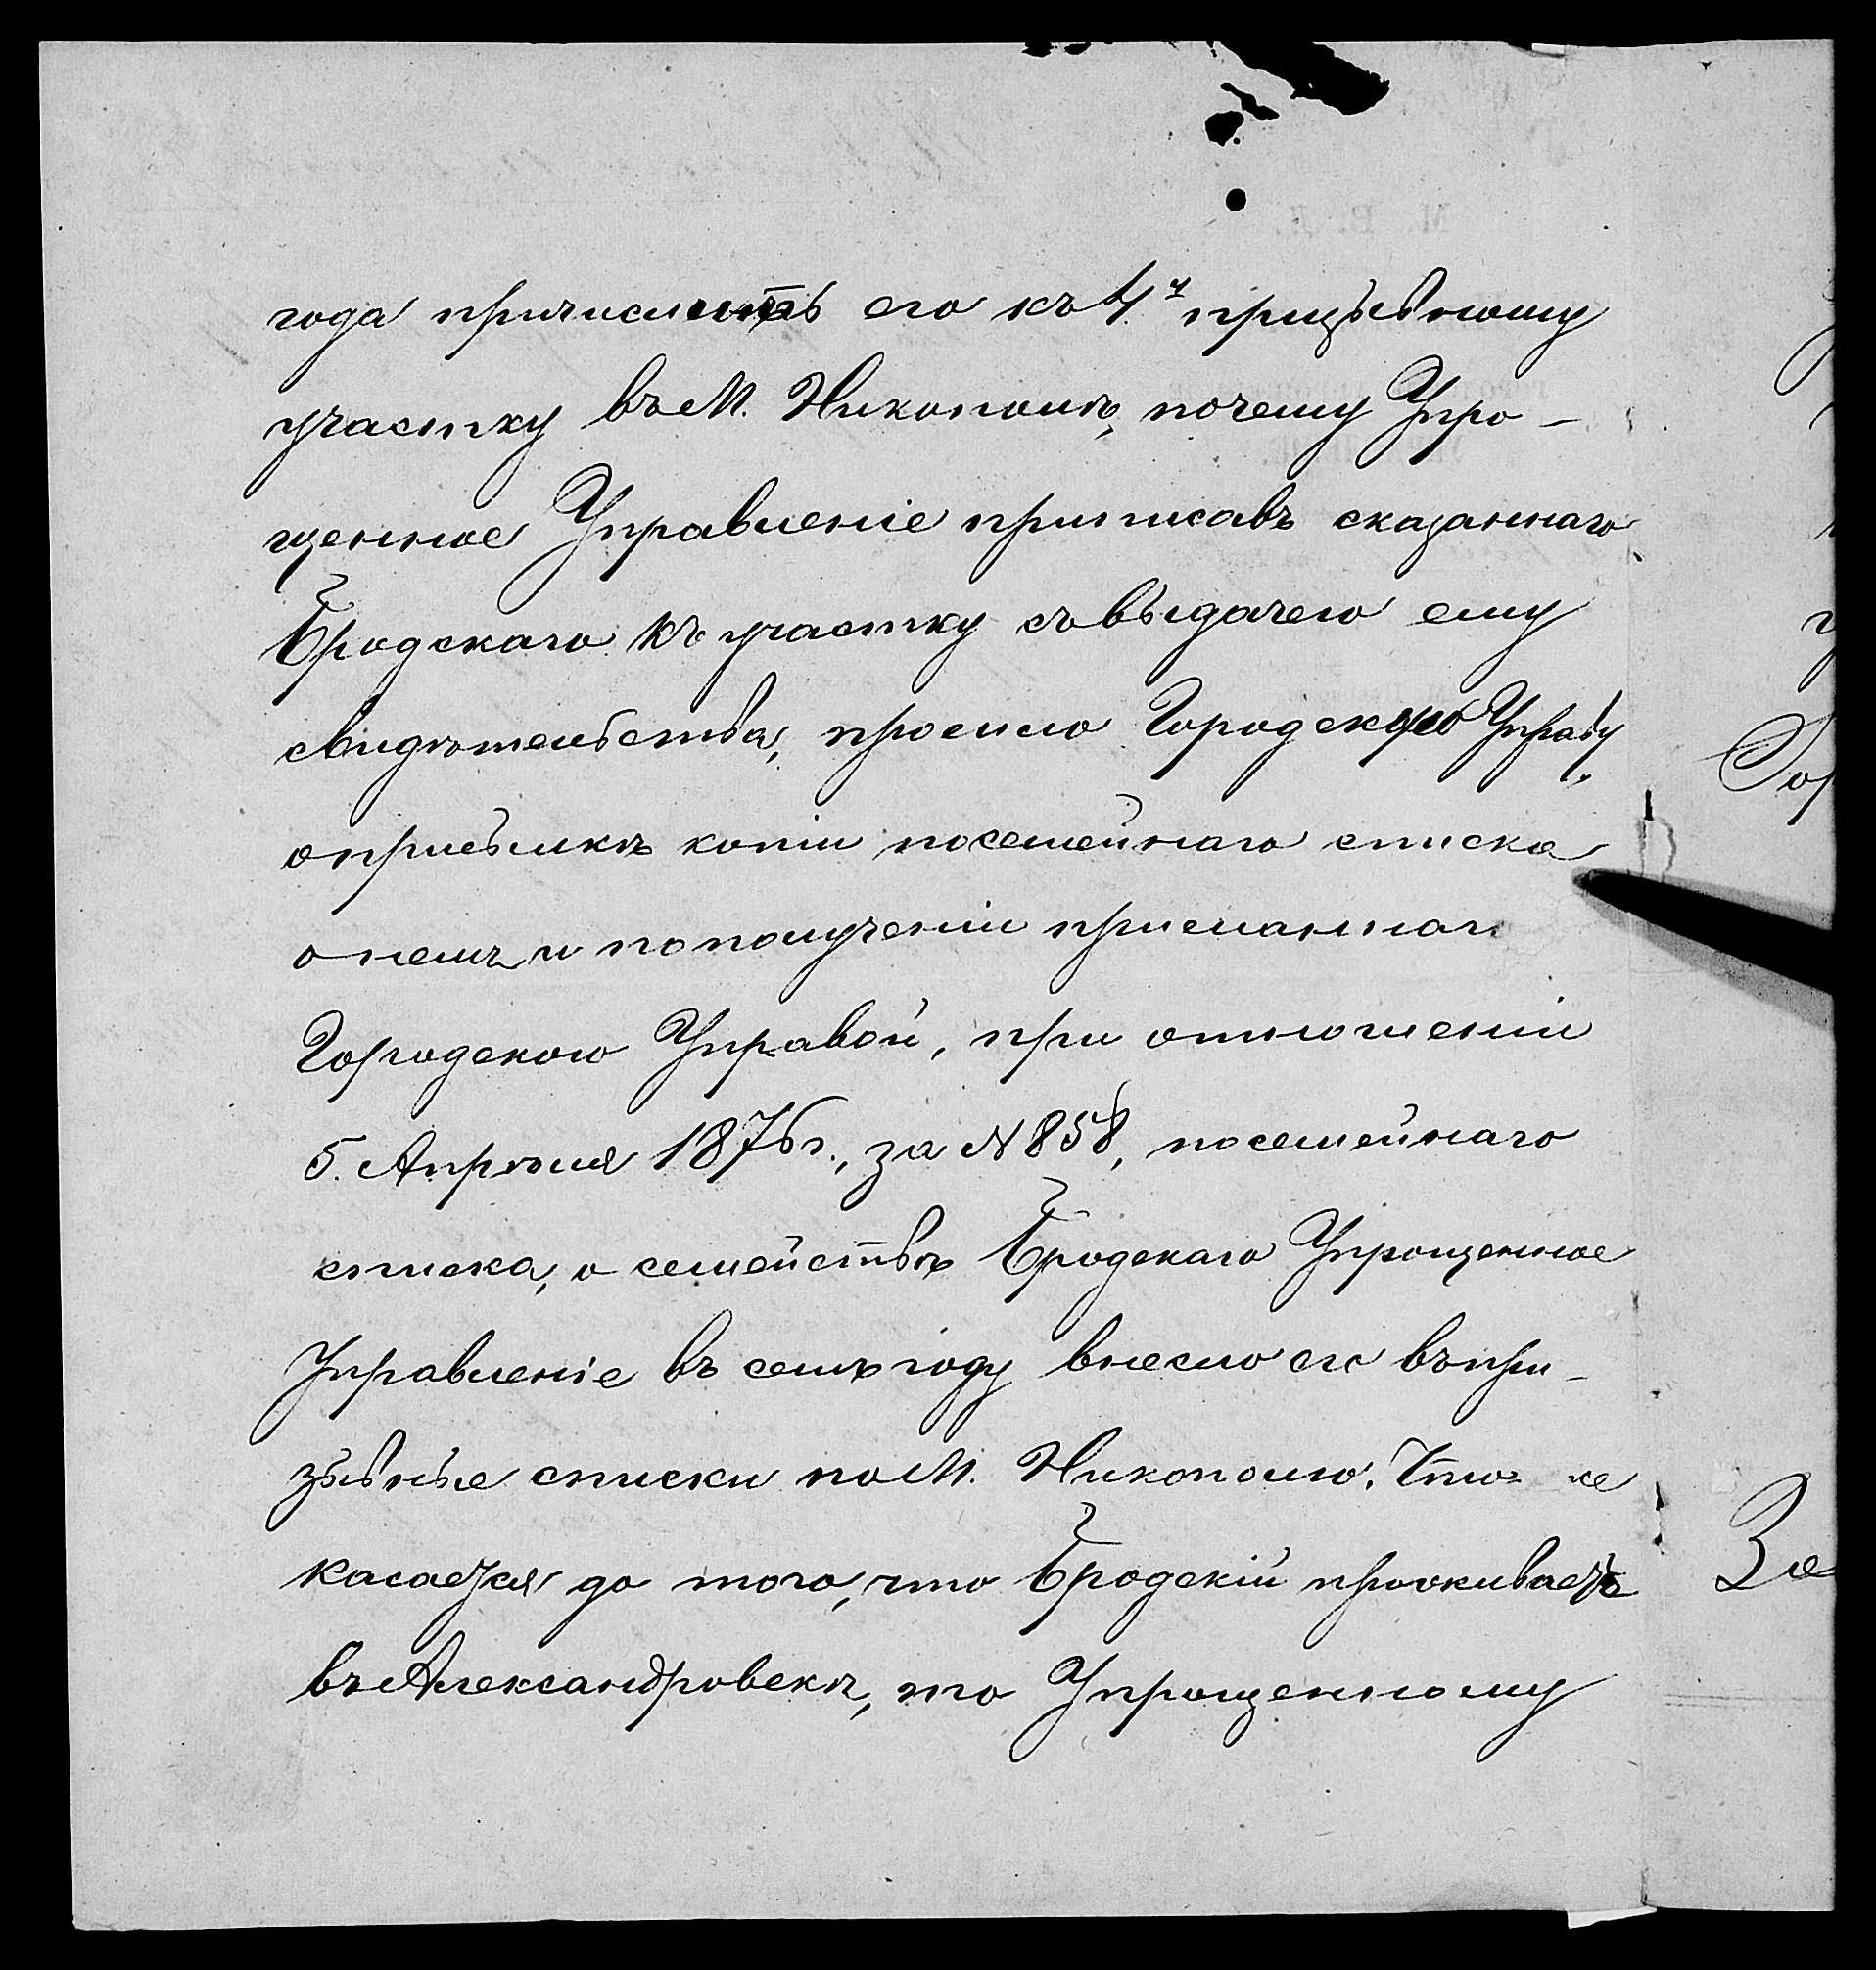 года причислить его къ 4.у призывному
участку въ М. Никополѣ, почему Упро-
щенное Управленіе приписавъ сказаннаго
Бродскаго къ участку съ выдачею ему
свидѣтельства, просило Городскую Управу
о присылкѣ копіи посемейнаго списка
о немъ и по полученіи присланнаго
Городскою Управой, при отношеніи
5. Апрѣля 1876 г., за N 858, посемейнаго
списка, о семействѣ Бродскаго Упрощенное
Управленіе въ семъ году внесло его въ при-
зывные списки по М. Никополю. Что же
касается до того, что Бродскій проживаетъ
въ Александровскѣ, то Упрощенному